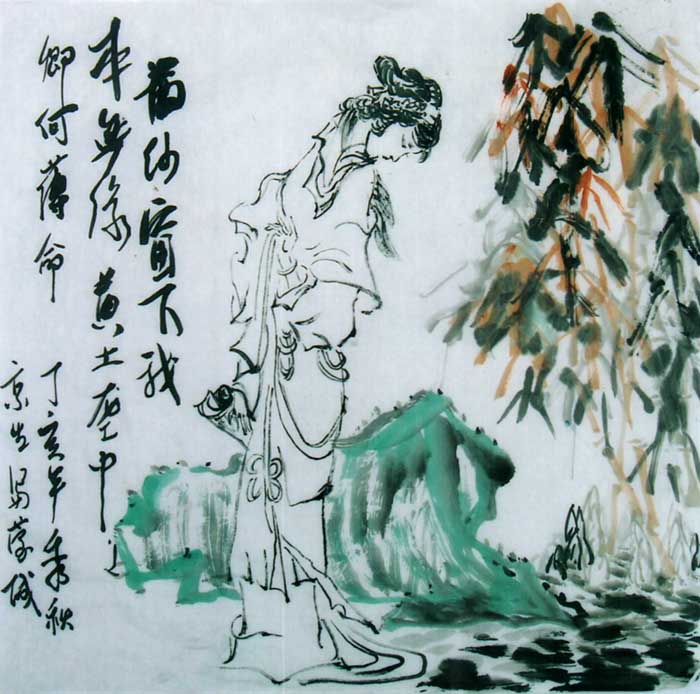 茜纱窗下我
本無缘黄土垄中
卿何薄命
丁亥年季秋
京生